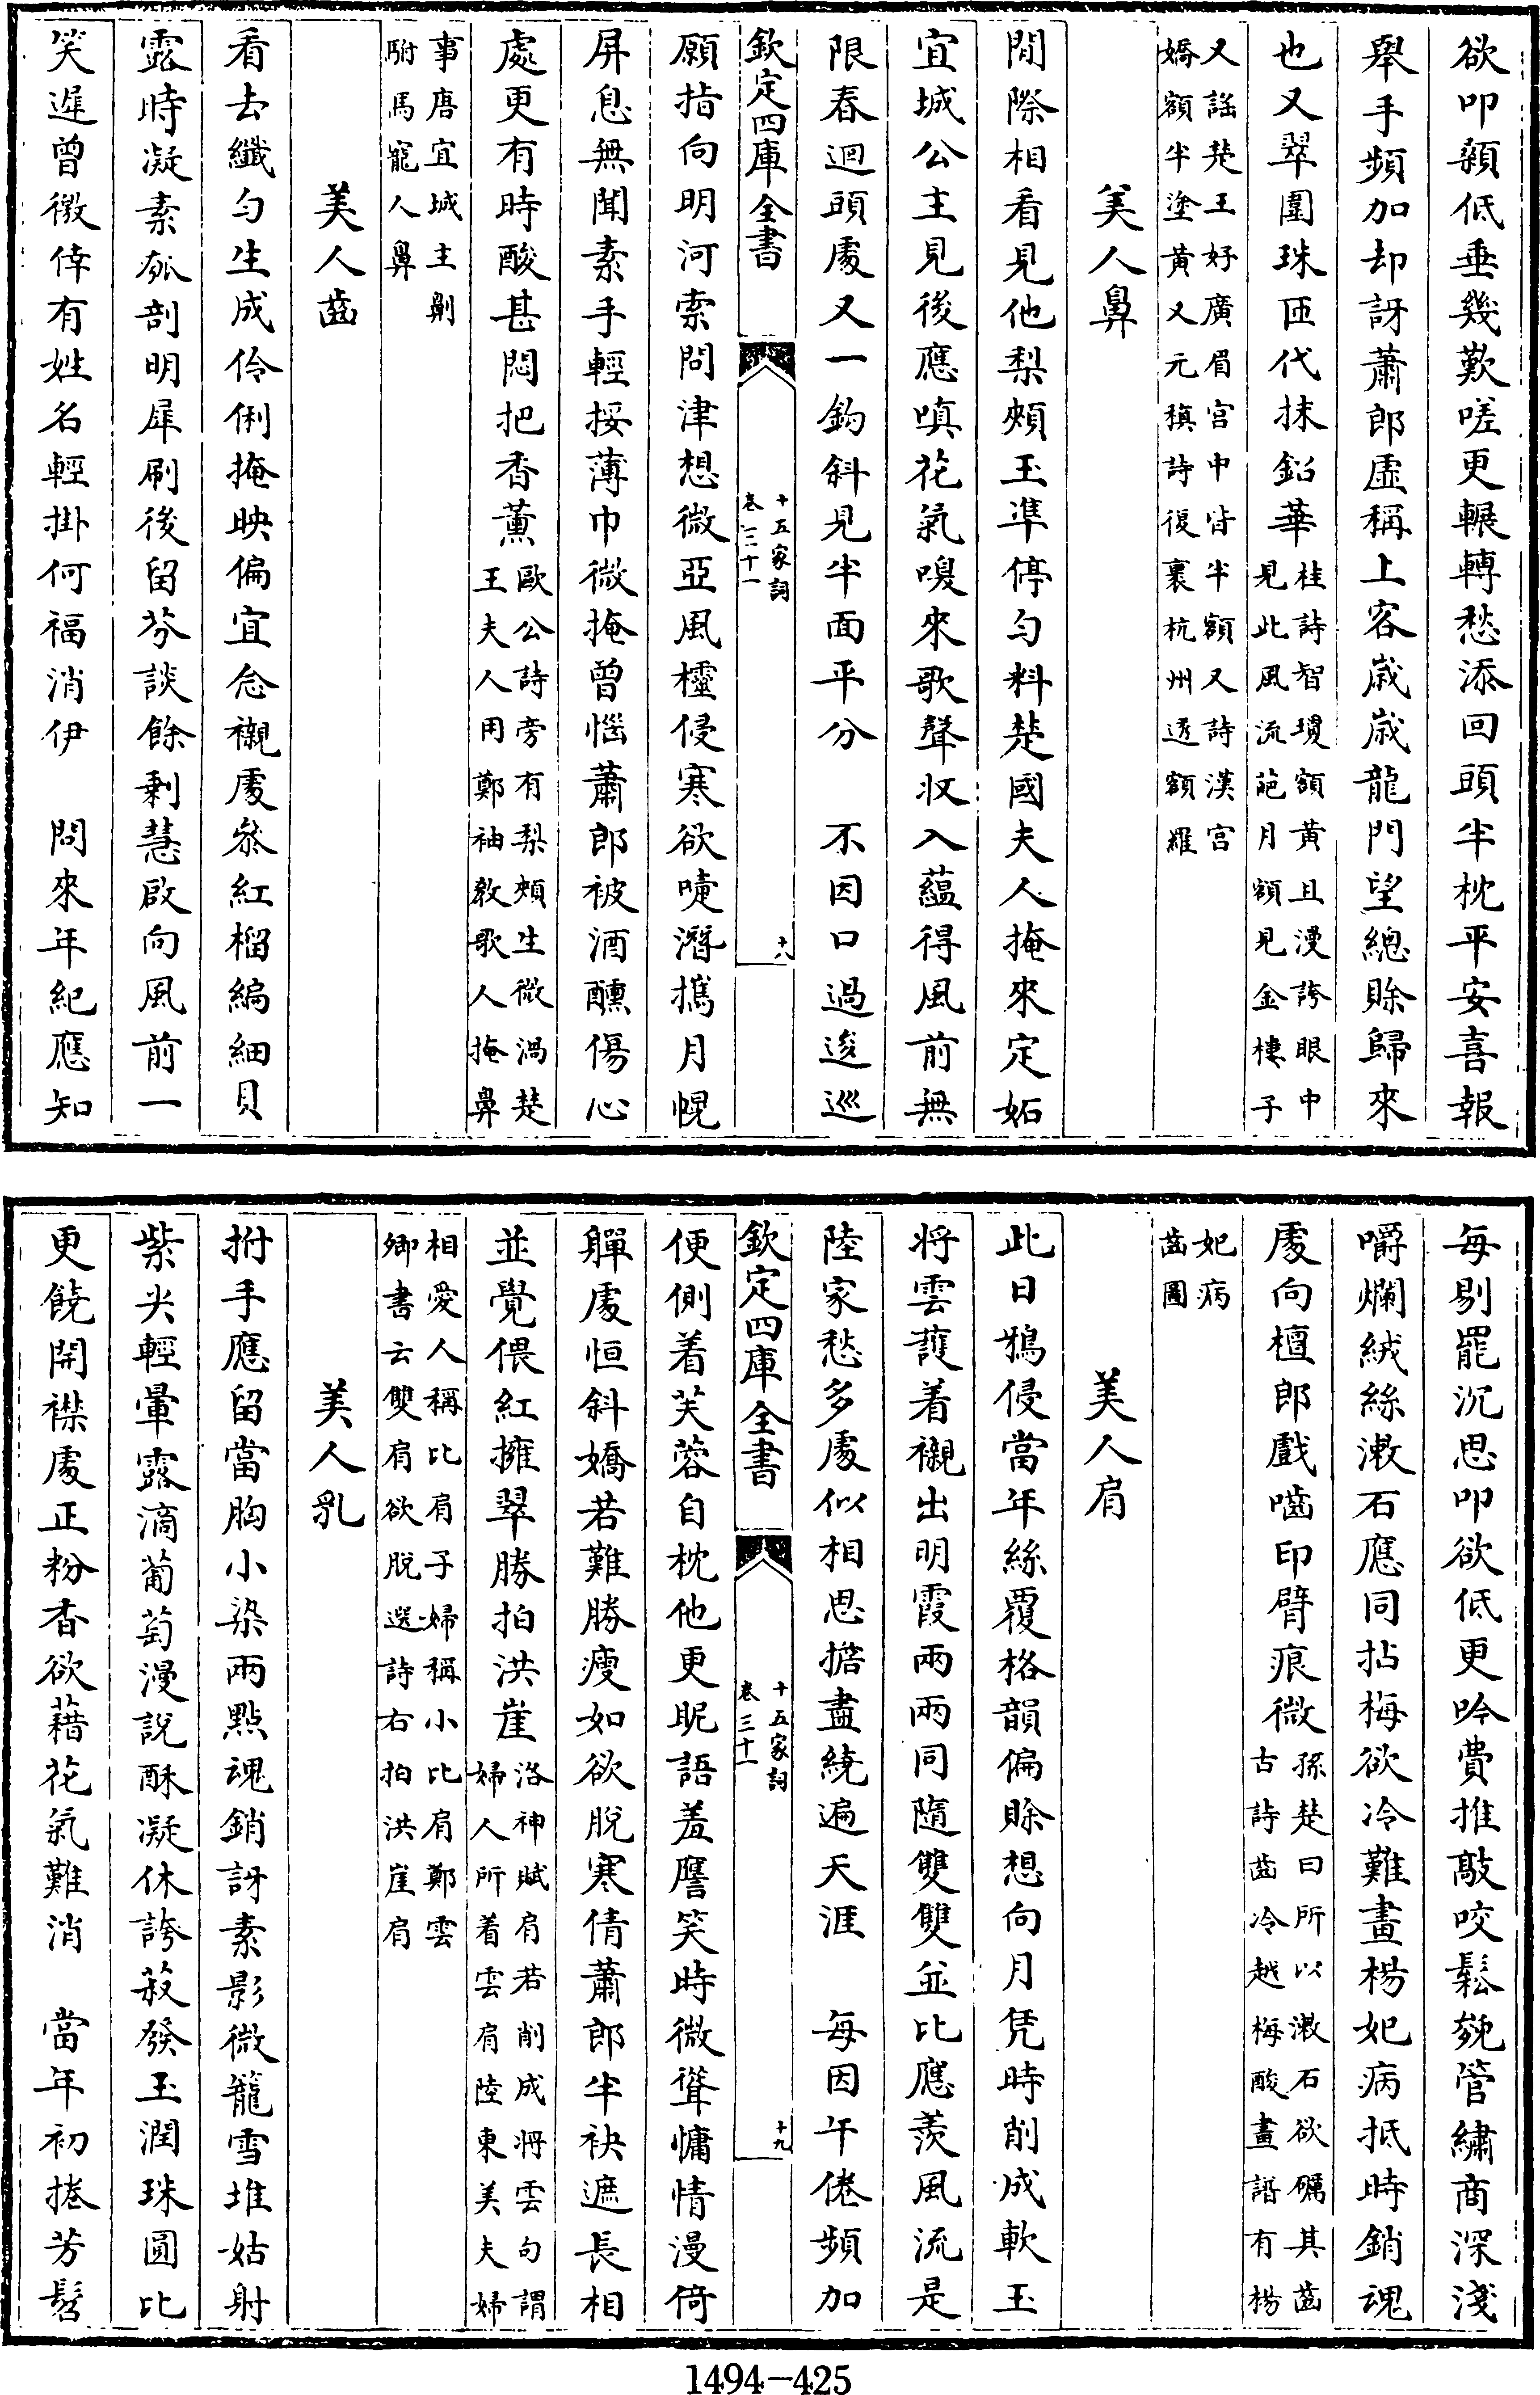 欲叩顙低垂幾歎嗟更輾轉愁添回頭半枕平安喜報
舉手頻加却訝蕭郎虛稱上客歲歲龍門望總賒歸來
也又翠圍珠匝代抹鉛華桂詩智瓊額黃且漫誇眼中
見此風流葩月額見金樓子
又謡楚王好廣眉宮中皆半額又詩漢宮
嬌額半塗黃又元稹詩復裹杭州透額羅
美人鼻
閒際相看見他梨頰玉準停勻料楚國夫人掩來定妬
宜城公主見後應嗔花氣嗅來歌聲收入蘊得風前無
限春迴頭處又一鈎斜見半面平分　不因口過逡巡
欽定四庫全書
十五家詞
卷三十一
十八
願指向明河索問津想微亞風櫺侵寒欲嚏潛攜月幌
屏息無聞素手輕挼薄巾微掩曾惱蕭郎被酒醺傷心
處更有時酸甚悶把香薰歐公詩旁有梨頰生微渦楚
王夫人用鄭袖教歌人掩鼻
事唐宜城主劓
駙馬寵人鼻
美人齒
看去纖勻生成伶俐掩映偏宜念襯處叅紅榴編細貝
露時凝素瓠剖明犀刷後留芬談餘剩慧啟向風前一
笑遲曾徼倖有姓名輕掛何福消伊　問來年紀應知
每剔罷沉思叩欲低更吟費推敲咬鬆毵管繡商深淺
嚼爛絨絲漱石應同拈梅欲冷難畫楊妃病抵時銷魂
處向檀郎戲嚙印臂痕微孫楚曰所以漱石欲礪其齒
古詩齒冷越梅酸畫譜有楊
妃病
齒圖
美人肩
此日鴉侵當年絲覆格韻偏賒想向月凭時削成軟玉
將雲護着襯出明霞兩兩同隨雙雙並比應羨風流是
陸家愁多處似相思擔盡繞遍天涯　每因午倦頻加
欽定四庫全書
十五家詞
卷三十一
十九
便側着芙蓉自枕他更眤語羞譍笑時微聳慵情漫倚
軃處恒斜嬌若難勝瘦如欲脫寒倩蕭郎半袂遮長相
並覺偎紅擁翠勝拍洪崖洛神賦肩若削成將雲句謂
婦人所着雲肩陸東美夫婦
相愛人稱比肩子婦稱小比肩鄭雲
卿書云雙肩欲脫選詩右拍洪崖肩
美人乳
拊手應留當胸小染兩點魂銷訝素影微籠雪堆姑射
紫尖輕暈露滴葡萄漫說酥凝休誇菽發玉潤珠圓比
更饒開襟處正粉香欲藉花氣難消　當年初捲芳髫
1494-425